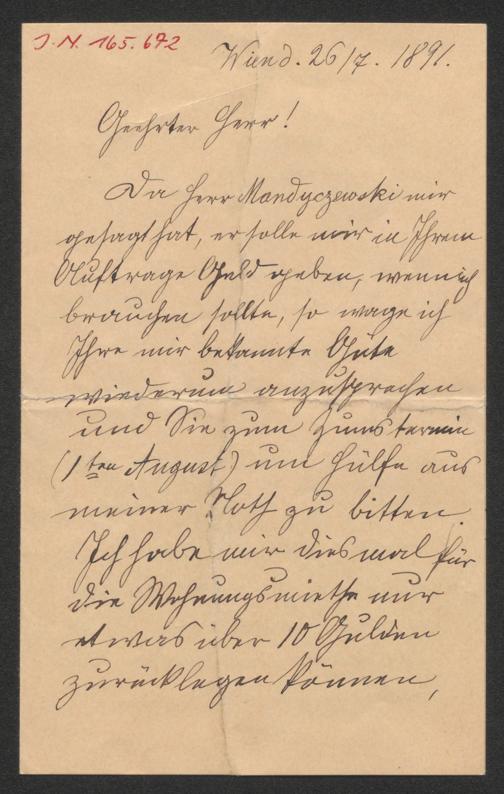 J. N. 165.672
Wien d. 26/7. 1891.
Geehrter Herr!
Da Herr Mandyczewski mir
gesagt hat, er solle mir in Ihrem
Auftrage Geld geben, wenn ich
brauchen sollte, so wage ich
Ihre mir bekannte Güte
wiederum anzusprechen
und Sie zum Zinstermin
(1ten August) um Hülfe aus
meiner Noth zu bitten.
Ich habe mir diesmal für
die Wohnungsmiethe nur
etwas über 10 Gulden
zurücklegen können,